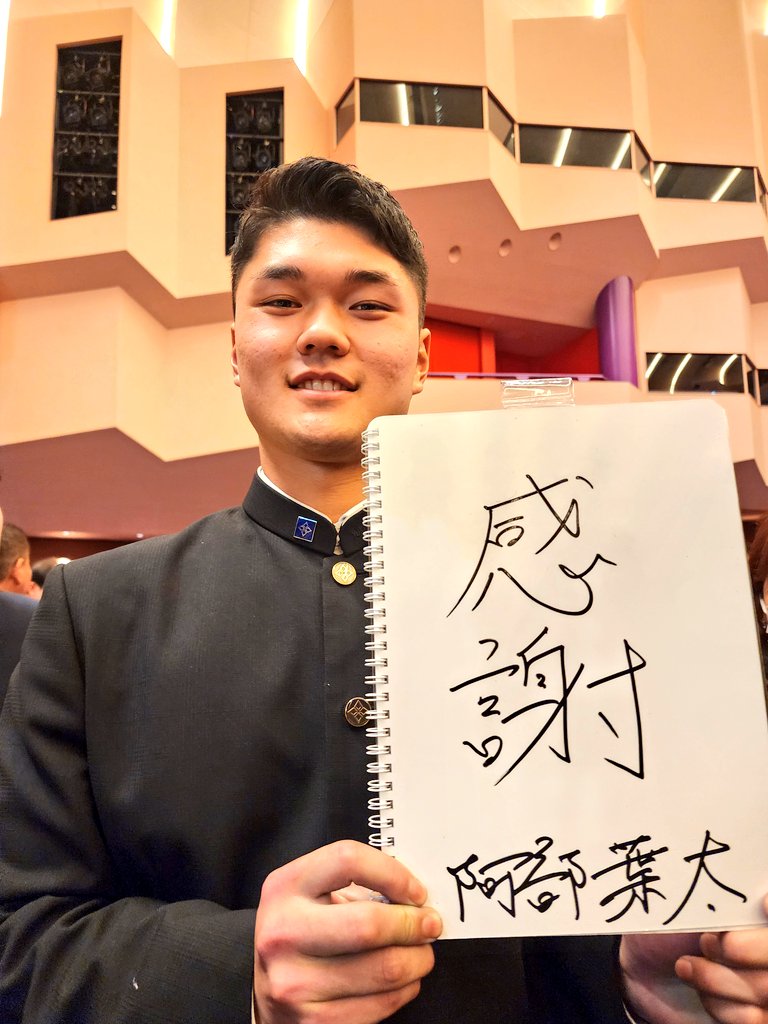 感
謝
阿部葉太